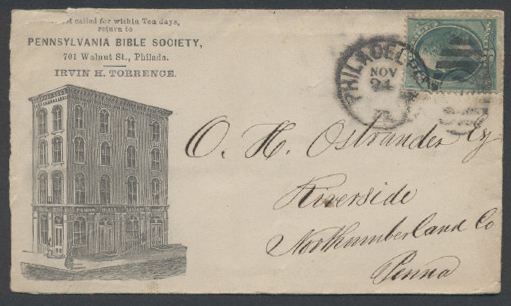 not called for within Ten days,
return to
PENNSYLVANIA BIBLE SOCIETY,
701 Walnut St., Philada.
IRVIN H. TORRENCE.
PHILADEL
NOV
24
O. H. Ostrander Esq
Riverside
Northumberland Co
Penna